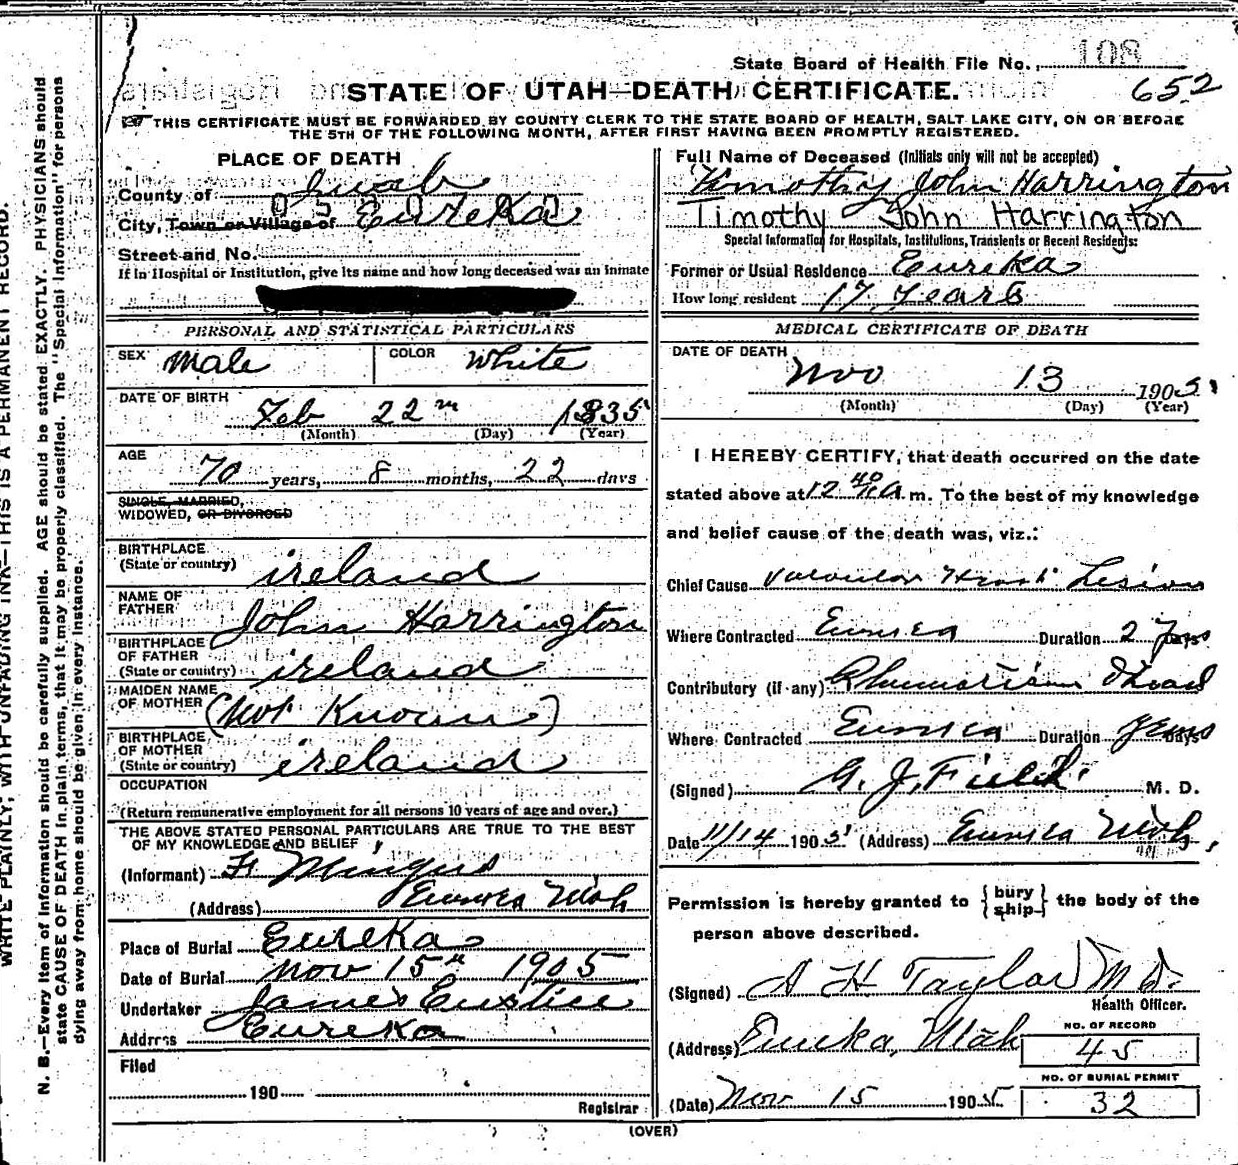 State Board of Health File No. 108
652
STATE OF UTAH—DEATH CERTIFICATE.
THIS CERTIFICATE MUST BE FORWARDED BY COUNTY CLERK TO THE STATE BOARD OF HEALTH, SALT LAKE CITY, ON OR BEFORE
THE 5TH OF THE FOLLOWING MONTH, AFTER FIRST HAVING BEEN PROMPTLY REGISTERED.
PLACE OF DEATH
County of Juab
City, Town or Village of Eureka
Street and No.
If in Hospital or Institution, give its name and how long deceased was an inmate
PERSONAL AND STATISTICAL PARTICULARS
SEX Male COLOR White
DATE OF BIRTH
Feb 22 1835
(Month) (Day) (Year)
AGE
70 years, 8 months, 22 days
SINGLE, MARRIED,
WIDOWED, OR DIVORCED
BIRTHPLACE
(State or country) ireland
NAME OF
FATHER John Harrington
BIRTHPLACE
OF FATHER
(State or country) ireland
MAIDEN NAME
OF MOTHER (Not Known)
BIRTHPLACE
OF MOTHER
(State or country) ireland
OCCUPATION
(Return remunerative employment for all persons 10 years of age and over.)
THE ABOVE STATED PERSONAL PARTICULARS ARE TRUE TO THE BEST
OF MY KNOWLEDGE AND BELIEF
(Informant) F. Mingus
(Address) Eureka Utah
Place of Burial Eureka
Date of Burial Nov 15th 1905
Undertaker James Eustice
Address Eureka
Filed
190
Registrar
Full Name of Deceased (Initials only will not be accepted)
Timothy John Harrington
Timothy John Harrington
Special Information for Hospitals, Institutions, Transients or Recent Residents:
Former or Usual Residence Eureka
How long resident 17 years
MEDICAL CERTIFICATE OF DEATH
DATE OF DEATH
Nov 13 1905
(Month) (Day) (Year)
I HEREBY CERTIFY, that death occurred on the date
stated above at 12 40 A. m. To the best of my knowledge
and belief cause of the death was, viz.:
Chief Cause Valvular Heart Lesion
Where Contracted Eureka Duration 2 Years
Contributory (if any) Rheumatism
Where Contracted Eureka Duration Years
(Signed) G. J. Field M. D.
Date 11/14 1905 (Address) Eureka Utah,
Permission is hereby granted to {bury ship} the body of the
person above described.
(Signed) A H Taylor M D.
Health Officer.
(Address) Eureka, Utah
NO. OF RECORD
45
NO. OF BURIAL PERMIT
32
(Date) Nov 15 1905
(OVER)
WRITE PLAINLY, WITH UNFADING INK—THIS IS A PERMANENT RECORD.
N. B.—Every item of information should be carefully supplied. AGE should be stated EXACTLY. PHYSICIANS should
state CAUSE OF DEATH in plain terms, that it may be properly classified. The "Special Information" for persons
dying away from home should be given in every instance.